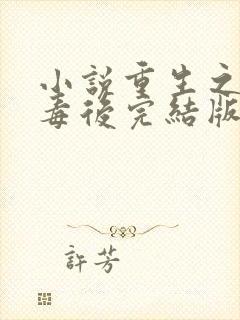 小說重生之
毒後完結版
許芳